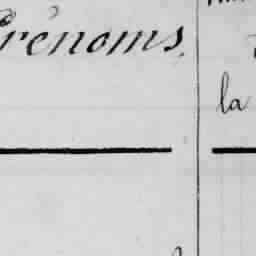 Prénoms.
la